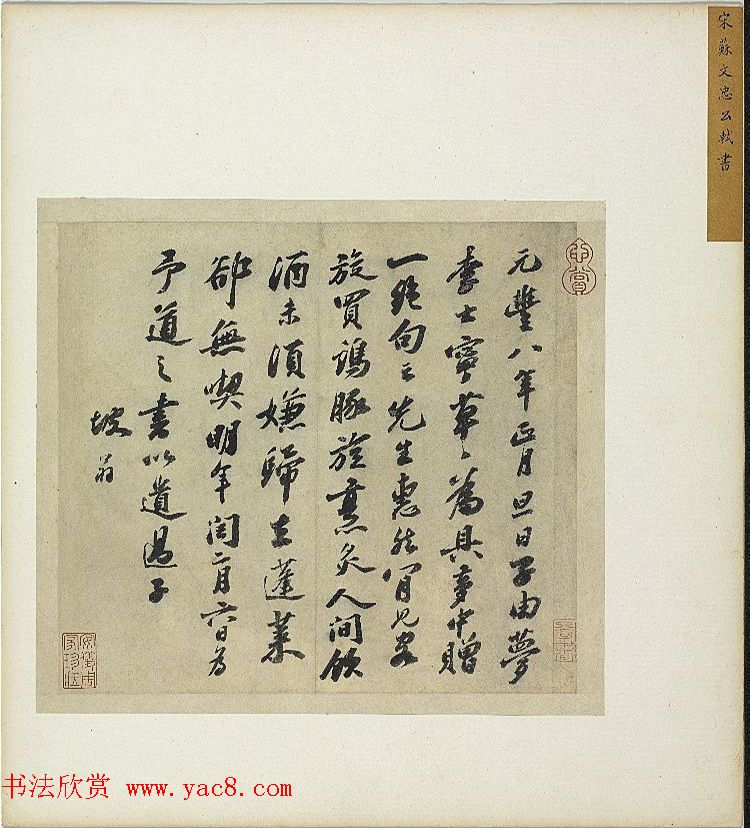 宋蘇文忠公軾書
元豐八年正月旦日子由夢
李士寧草草為具夢中贈
一絕句云先生惠然肯見客
旋買鷄豚旋烹炙人間飲
酒未須嫌歸去蓬萊
卻無喫明年閏二月六日為
予道之書以遺遲子
坡翁
书法欣赏 www.yac8.com